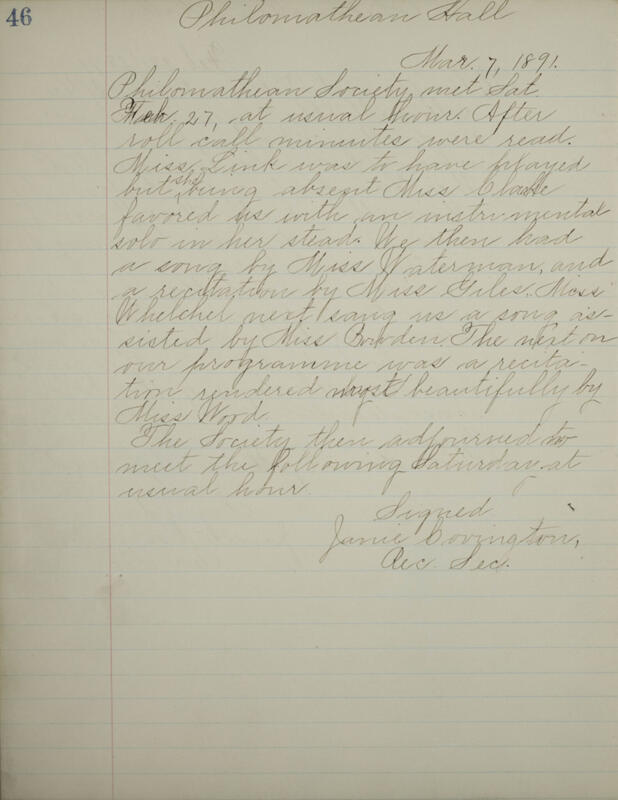 46
Philomathean Hall
Mar. 7, 1891.
Philomathean Society met Sat.
Feb. 27, at usual hour. After
roll call minutes were read.
Miss Link was to have played
but she being absent Miss
favored us with an instrumental
solo in her stead. We then had
a song by Miss Waterman, and
a recitation by Miss Giles. Miss
Whelchel next sang us a song as-
sisted by Miss Bowden. The next on
our programme was a recita-
tion rendered most beautifully by
Miss Wood.
The Society then adjourned to
meet the following Saturday at
usual hour.
Signed
Janie Covington,
Rec. Sec.